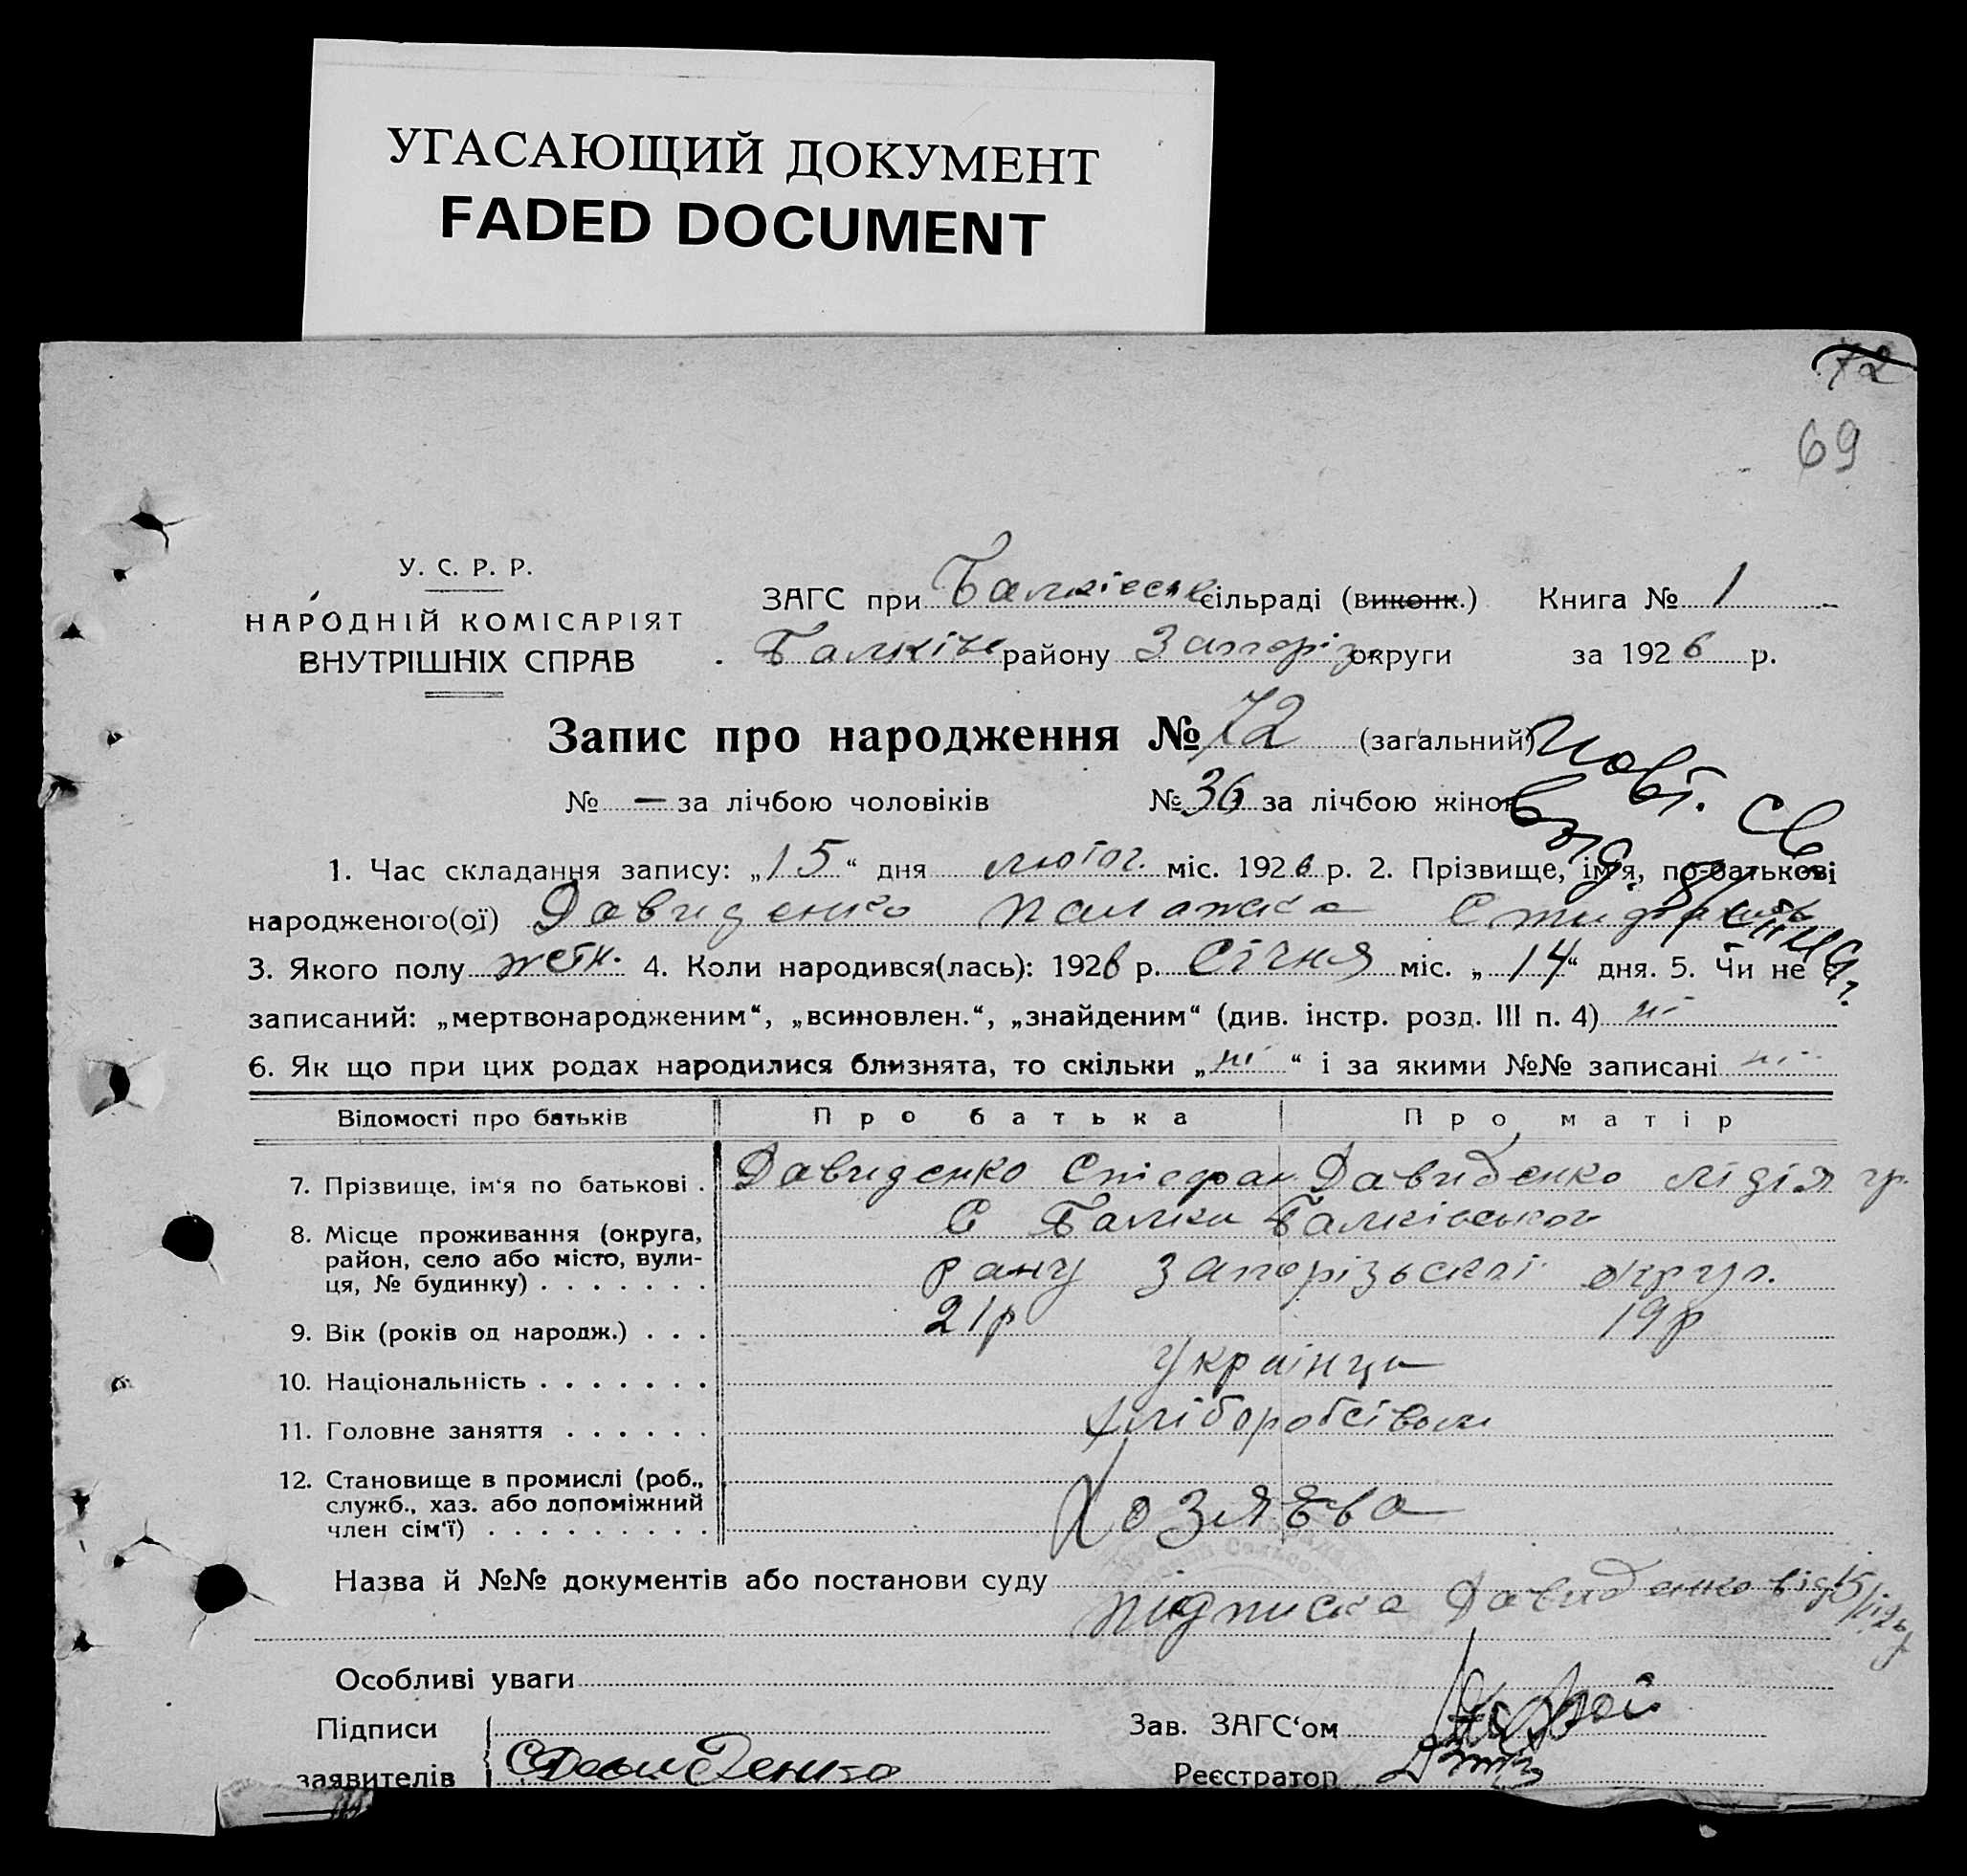 УГАСАЮЩИЙ ДОКУМЕНТ
FADED DOCUMENT
72
69
У. С. Р. Р.
НАРОДНІЙ КОМІСАРІЯТ
ВНУТРІШНІХ СПРАВ
ЗАГС при Балківськ сільраді (виконк.) Книга № 1
Балків району Запоріз округи за 1926 р.
Запис про народження № 72 (загальний)
№ — за лічбою чоловіків № 36 за лічбою жінок
Повт. св
выд.
1. Час складання запису: „15“ дня лютог. міс. 1926 р. 2. Прізвище, ім'я, по-батькові
народженого(ої) Давиденко Палажка
3. Якого полу жетн. 4. Коли народився(лась): 1926 р. Січня міс. „14“ дня. 5. Чи не є
записаний: „мертвонародженим“, „всиновлен.“, „знайденим“ (див. інстр. розд. III п. 4) ні
6. Як що при цих родах народилися близнята, то скільки „ні“ і за якими №№ записані ні
Відомості про батьків Про батька Про матір
7. Прізвище, ім'я по батькові . Давиденко Стефан Давиденко Лідія гр.
8. Місце проживання (округа, С Балки Балківського
район, село або місто, вули-
ця, № будинку) . . . . . . . рану Запорізьскоі округ.
9. Вік (років од народж.) . . . 21р 19р
10. Національність . . . . . . . Украінци
11. Головне заняття . . . . . . хліборобсівом
12. Становище в промислі (роб.,
служб., хаз. або допоміжний Хозяева
член сім'ї) . . . . . . . . .
Назва й №№ документів або постанови суду підписка Давиденко від 15/II 26 р
Особливі уваги
Підписи Зав. ЗАГС'ом
заявителів СДавиденко Реєстратор